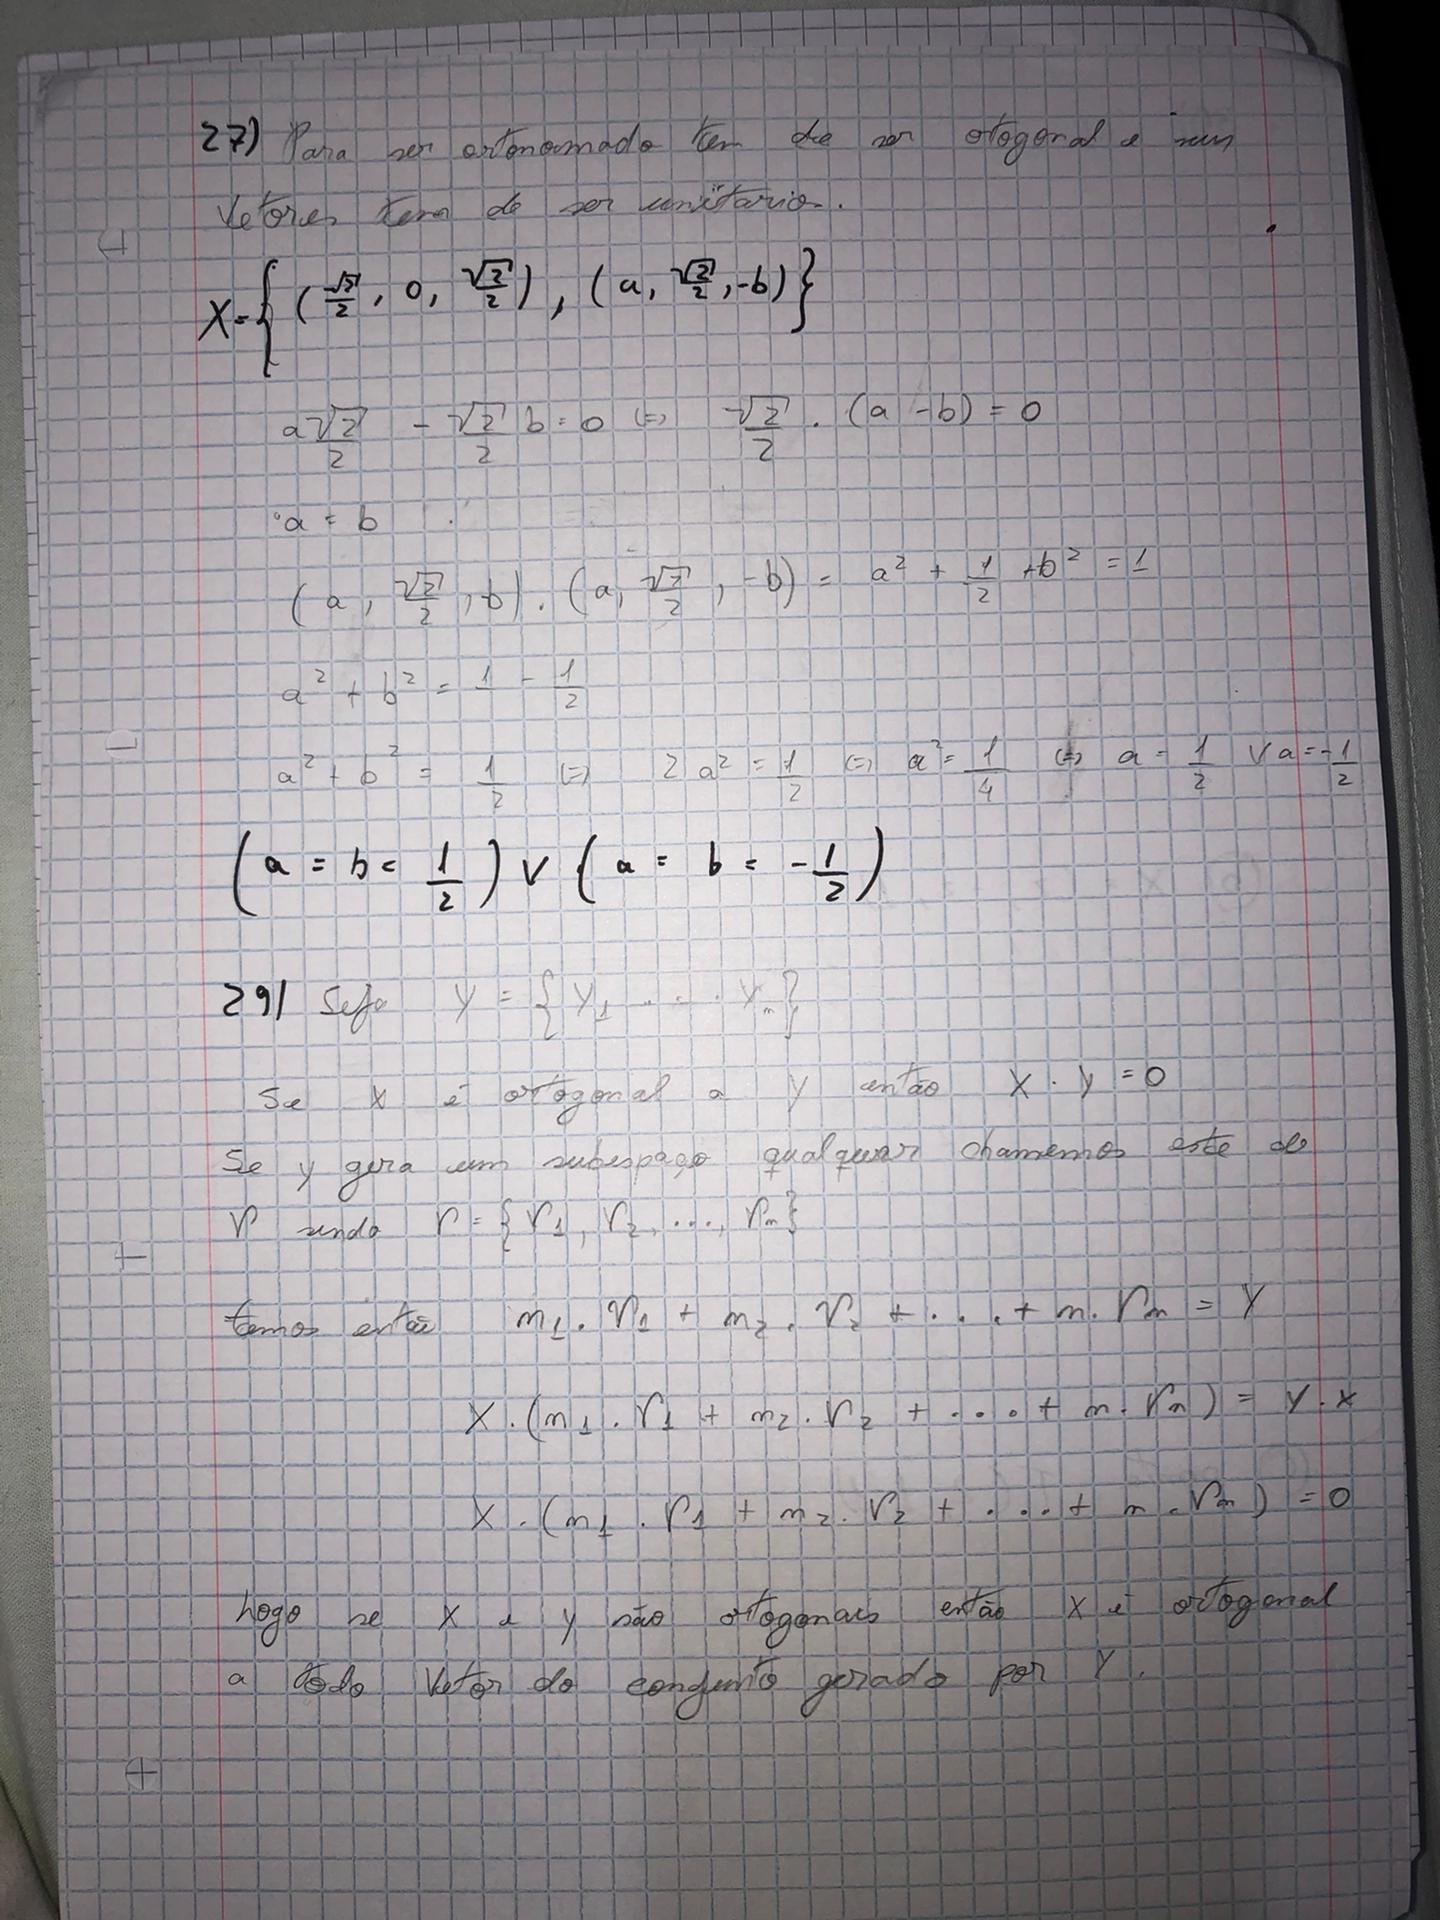 27) Para ser ortonormado tem de ser otogonal e seus
vetores tem de ser unitarios.
X = { (√2/2, 0, √2/2), (a, √2/2, -b) }
a√2/2 - √2/2 b = 0 (=) √2/2 . (a - b) = 0
a = b
(a, √2/2, -b) . (a, √2/2, -b) = a² + 1/2 + b² = 1
a² + b² = 1 - 1/2
a² + b² = 1/2 (=) 2a² = 1/2 (=) a² = 1/4 (=) a = 1/2 ∨ a = -1/2
(a = b = 1/2) ∨ (a = b = -1/2)
29) Seja Y = {Y₁ .... Yₙ}
Se X é ortogonal a Y então X . Y = 0
Se y gera um subespaço qualquer chamemos este de
V sendo V = {V₁, V₂, ..., Vₙ}
temos então n₁ . V₁ + n₂ . V₂ + .... + n . Vₙ = Y
X . (n₁ . V₁ + n₂ . V₂ + .... + n . Vₙ) = Y . X
X . (n₁ . V₁ + n₂ . V₂ + .... + n . Vₙ) = 0
Logo se X e y são ortogonais então X é ortogonal
a todo Vetor do conjunto gerado por Y.